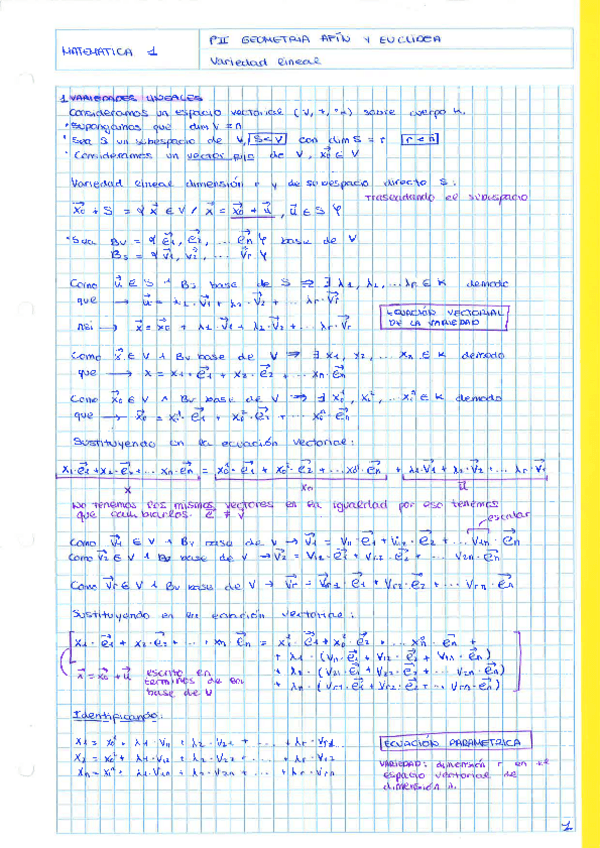 MATEMATICA 1
PII GEOMETRIA AFÍN Y EUCLIDEA
Variedad lineal
1 VARIEDADES LINEALES
Consideramos un espacio vectorial (V, +, ·K) sobre cuerpo K.
· Supongamos que dim V = n
· Sea S un subespacio de V, S<V con dim S = r r<n
· Consideramos un vector fijo de V, x⃗0 ∈ V
Variedad lineal dimensión r y de subespacio directo S:
trasladando el subespacio
x⃗0 + S = { x⃗ ∈ V / x⃗ = x⃗0 + u⃗, u⃗ ∈ S }
· Sea Bv = { e⃗1, e⃗2, ... e⃗n } base de V
Bs = { v⃗1, v⃗2, ... v⃗r }
Como u⃗ ∈ S ∧ Bs base de S ⇒ ∃ λ1, λ2, ... λr ∈ K demodo
que → u⃗ = λ1·v⃗1 + λ2·v⃗2 + ... λr·v⃗r
así → x⃗ = x⃗0 + λ1·v⃗1 + λ2·v⃗2 + ... λr·v⃗r
ECUACIÓN VECTORIAL
DE LA VARIEDAD
Como x⃗ ∈ V ∧ Bv base de V ⇒ ∃ x1, x2, ... xn ∈ K demodo
que → x = x1·e⃗1 + x2·e⃗2 + ... xn·e⃗n
Como x⃗0 ∈ V ∧ Bv base de V ⇒ ∃ x₀¹, x₀², ... x₀ⁿ ∈ K demodo
que → x⃗0 = x₀¹·e⃗1 + x₀²·e⃗2 + ... x₀ⁿ·e⃗n
Sustituyendo en la ecuación vectorial:
x1·e⃗1 + x2·e⃗2 + ... xn·e⃗n = x₀¹·e⃗1 + x₀²·e⃗2 + ... x₀ⁿ·e⃗n + λ1·v⃗1 + λ2·v⃗2 + ... λr·v⃗r
x x0 u⃗
No tenemos los mismos vectores en la igualdad por eso tenemos
que cambiarlos. e⃗ ≠ v⃗
escalar
Como v⃗1 ∈ V ∧ Bv base de V → v⃗1 = V11·e⃗1 + V12·e⃗2 + ... V1n·e⃗n
Como v⃗2 ∈ V ∧ Bv base de V → v⃗2 = V21·e⃗1 + V22·e⃗2 + ... V2n·e⃗n
Como v⃗r ∈ V ∧ Bv base de V → v⃗r = Vr1·e⃗1 + Vr2·e⃗2 + ... Vrn·e⃗n
Sustituyendo en la ecuación vectorial:
x1·e⃗1 + x2·e⃗2 + ... + xn e⃗n = x₀¹·e⃗1 + x₀²·e⃗2 + ... x₀ⁿ·e⃗n +
+ λ1·(V11·e⃗1 + V12·e⃗2 + V1n·e⃗n) +
+ λ2·(V21·e⃗1 + V22·e⃗2 + ... V2n·e⃗n)
+ λr·(Vr1·e⃗1 + Vr2·e⃗2 + ... Vrn·e⃗n)
x⃗ = x⃗0 + u⃗
escrito en
terminos de en
base de V
Identificando:
x1 = x₀¹ + λ1·V11 + λ2·V21 + ... + λr·Vr1
x2 = x₀² + λ1·V12 + λ2·V22 + ... + λr·Vr2
xn = x₀ⁿ + λ1·V1n + λ2·V2n + ... + λr·Vrn
ECUACIÓN PARAMETRICA
VARIEDAD: dimensión r en el
espacio vectorial de
dimensión n.
1